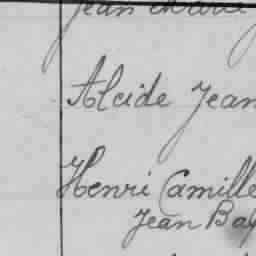 Jean Marie
Alcide Jean
Henri Camille
Jean Ba